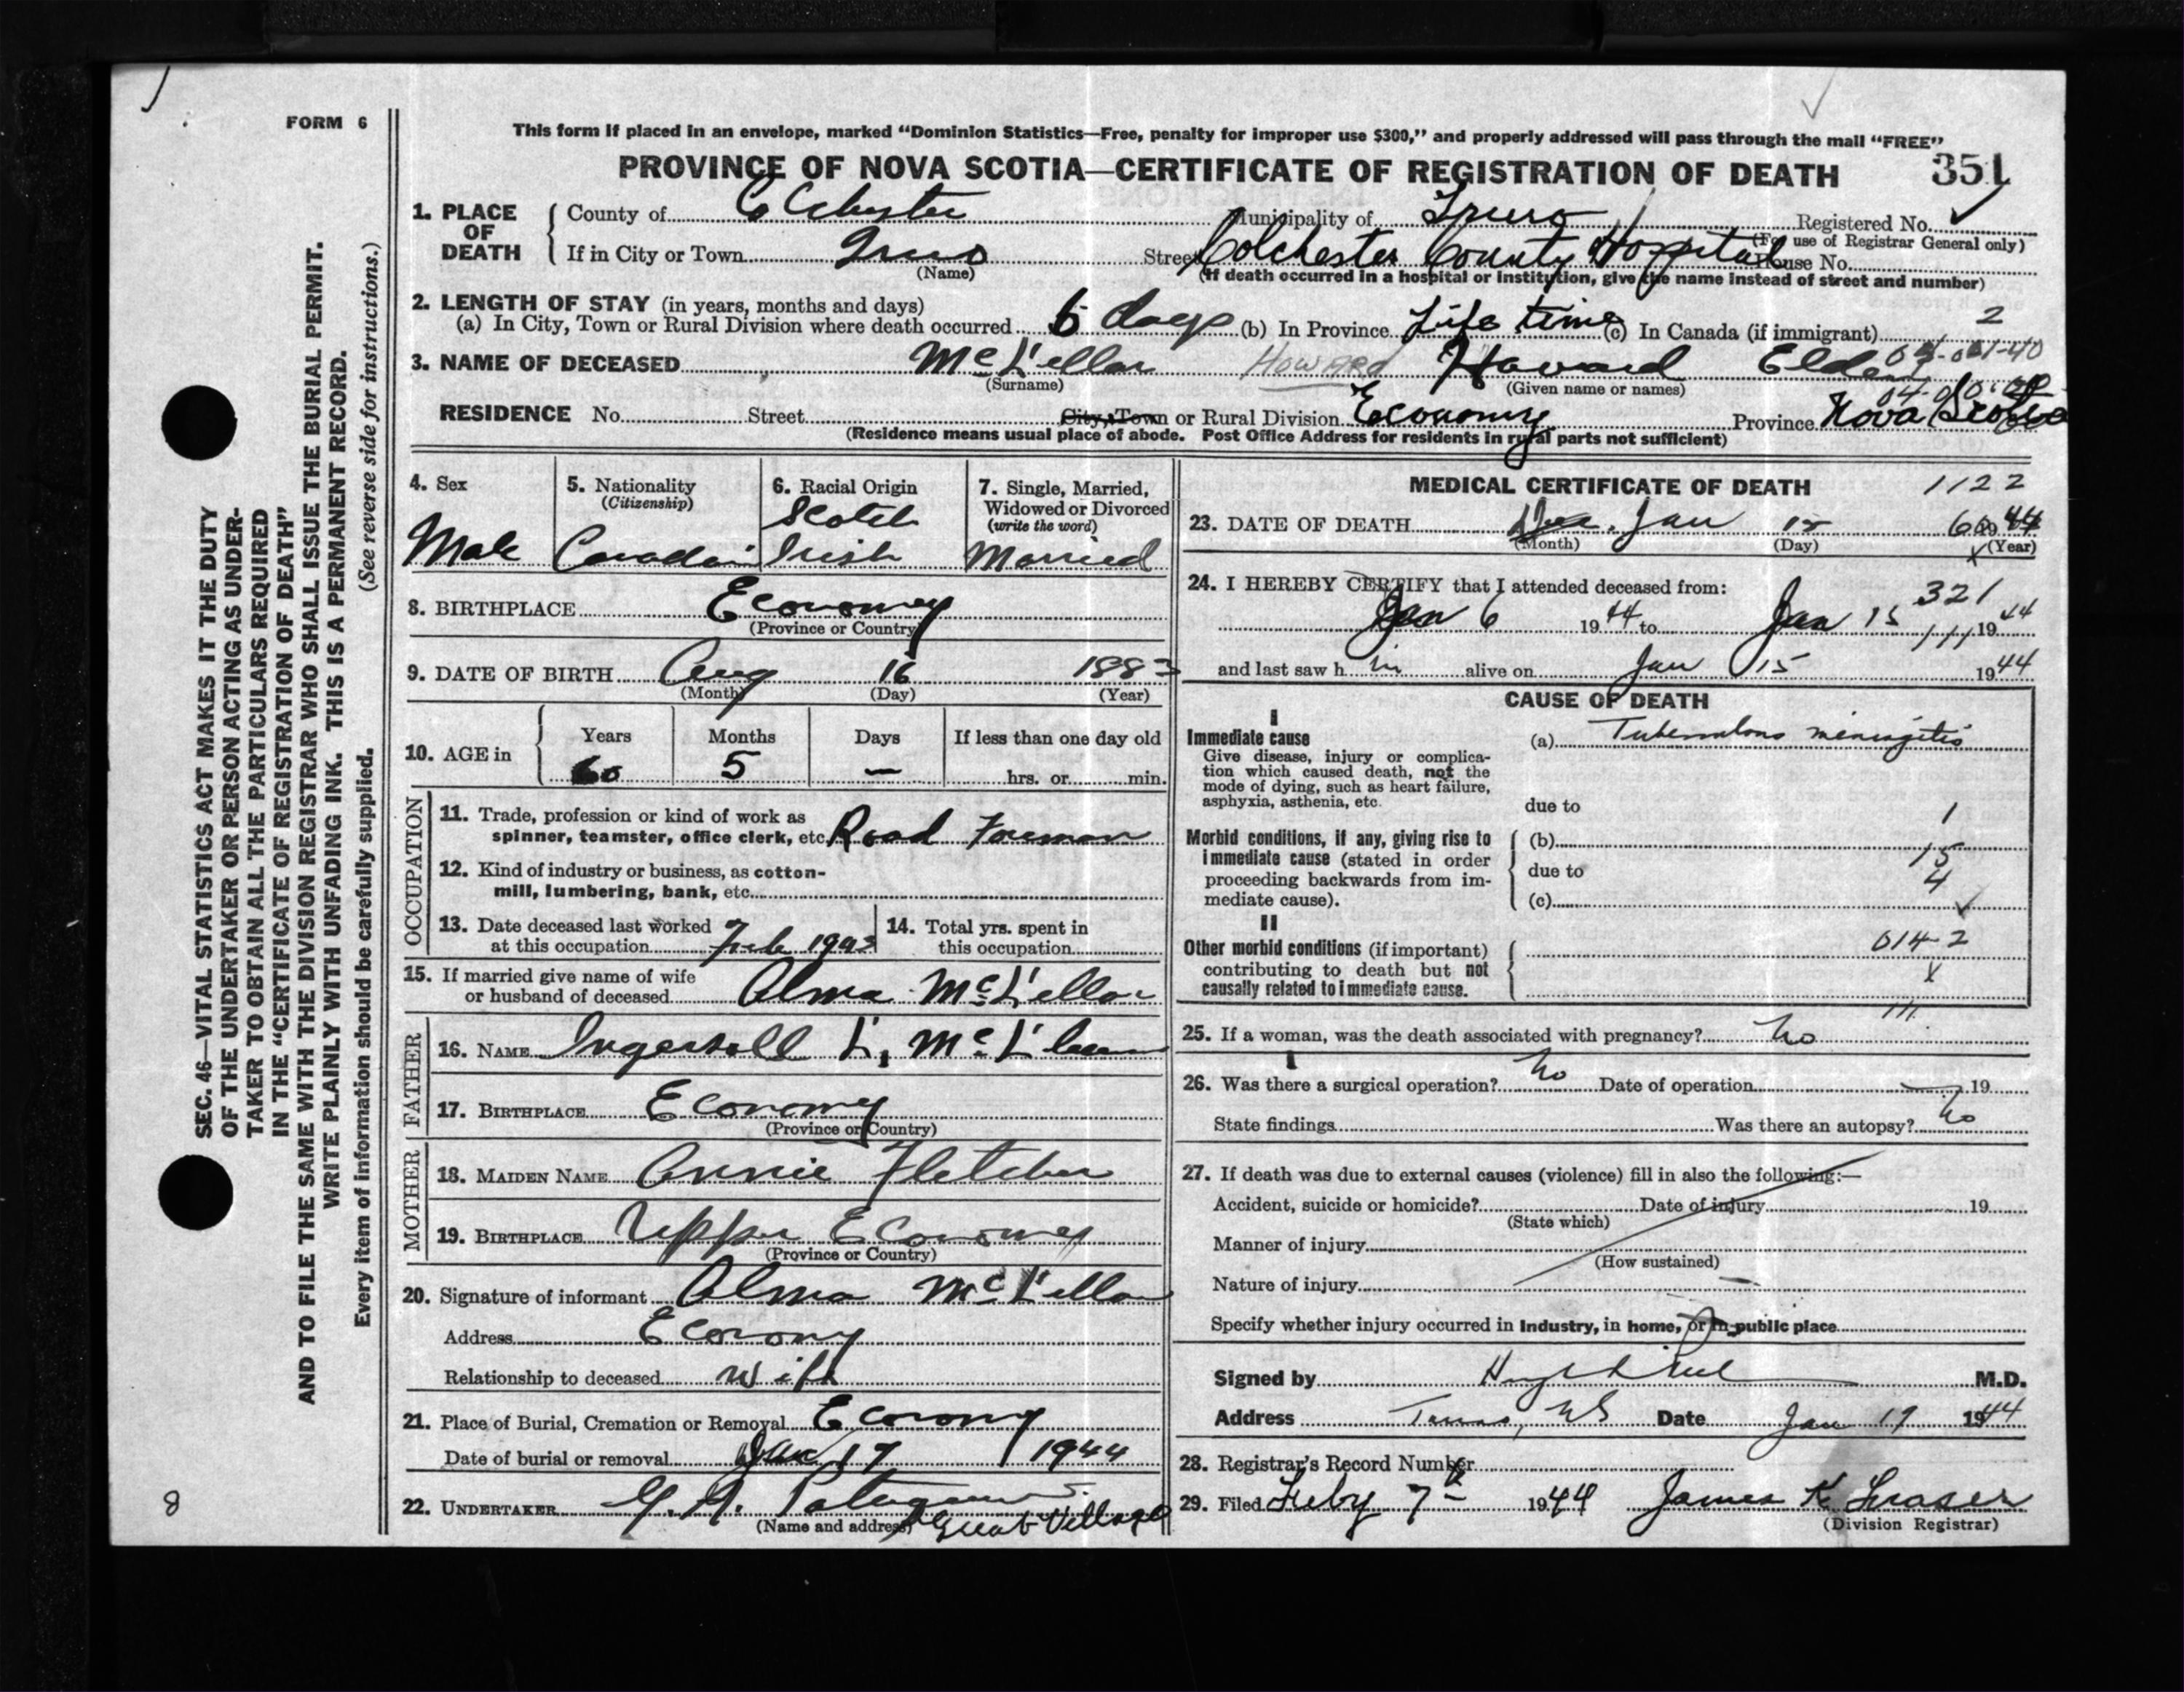 FORM 6
This form if placed in an envelope, marked “Dominion Statistics—Free, penalty for improper use $300,” and properly addressed will pass through the mail “FREE”
PROVINCE OF NOVA SCOTIA—CERTIFICATE OF REGISTRATION OF DEATH 351
1. PLACE OF DEATH County of Colchester Municipality of Truro Registered No.
(For use of Registrar General only)
If in City or Town Truro Street Colchester County Hospital House No.
(Name) (If death occurred in a hospital or institution, give the name instead of street and number)
2. LENGTH OF STAY (in years, months and days)
(a) In City, Town or Rural Division where death occurred 6 days (b) In Province Life time (c) In Canada (if immigrant) 2
3. NAME OF DECEASED McLellan Howard Howard Elder
(Surname) (Given name or names)
RESIDENCE No. Street City, Town or Rural Division Economy Province Nova Scotia
(Residence means usual place of abode. Post Office Address for residents in rural parts not sufficient)
4. Sex Male
5. Nationality (Citizenship) Canadian
6. Racial Origin Scotch Irish
7. Single, Married, Widowed or Divorced (write the word) Married
8. BIRTHPLACE Economy
(Province or Country)
9. DATE OF BIRTH Aug 16 1883
(Month) (Day) (Year)
10. AGE in Years Months Days If less than one day old
60 5 — hrs. or min.
OCCUPATION
11. Trade, profession or kind of work as spinner, teamster, office clerk, etc. Road Foreman
12. Kind of industry or business, as cotton-mill, lumbering, bank, etc.
13. Date deceased last worked at this occupation Feb 1943
14. Total yrs. spent in this occupation
15. If married give name of wife or husband of deceased Alma McLellan
FATHER
16. NAME Ingersoll L. McLellan
17. BIRTHPLACE Economy
(Province or Country)
MOTHER
18. MAIDEN NAME Annie Fletcher
19. BIRTHPLACE Upper Economy
(Province or Country)
20. Signature of informant Alma McLellan
Address Economy
Relationship to deceased Wife
21. Place of Burial, Cremation or Removal Economy
Date of burial or removal Jan 17 1944
22. UNDERTAKER G. A.
(Name and address) Great Village
MEDICAL CERTIFICATE OF DEATH 1122
23. DATE OF DEATH Jan 15 1944
(Month) (Day) (Year)
24. I HEREBY CERTIFY that I attended deceased from: 321
Jan 6 1944 to Jan 15 1944
111
and last saw him alive on Jan 15 1944
CAUSE OF DEATH
I
Immediate cause (a) Tuberculous meningitis
Give disease, injury or complication which caused death, not the mode of dying, such as heart failure, asphyxia, asthenia, etc.
due to 1
Morbid conditions, if any, giving rise to immediate cause (stated in order proceeding backwards from immediate cause).
(b) 15
due to 4
(c)
II
Other morbid conditions (if important) contributing to death but not causally related to immediate cause.
014-2
X
111
25. If a woman, was the death associated with pregnancy? no
26. Was there a surgical operation? no Date of operation — 19
State findings Was there an autopsy? no
27. If death was due to external causes (violence) fill in also the following:—
Accident, suicide or homicide? Date of injury 19
(State which)
Manner of injury
(How sustained)
Nature of injury
Specify whether injury occurred in Industry, in home, or in public place
Signed by M.D.
Address Truro, NS Date Jan 19 1944
28. Registrar's Record Number
29. Filed Feby 7th 1944 James K Fraser
(Division Registrar)
SEC. 46—VITAL STATISTICS ACT MAKES IT THE DUTY
OF THE UNDERTAKER OR PERSON ACTING AS UNDER-
TAKER TO OBTAIN ALL THE PARTICULARS REQUIRED
IN THE “CERTIFICATE OF REGISTRATION OF DEATH”
AND TO FILE THE SAME WITH THE DIVISION REGISTRAR WHO SHALL ISSUE THE BURIAL PERMIT.
WRITE PLAINLY WITH UNFADING INK. THIS IS A PERMANENT RECORD.
Every item of information should be carefully supplied. (See reverse side for instructions.)
8